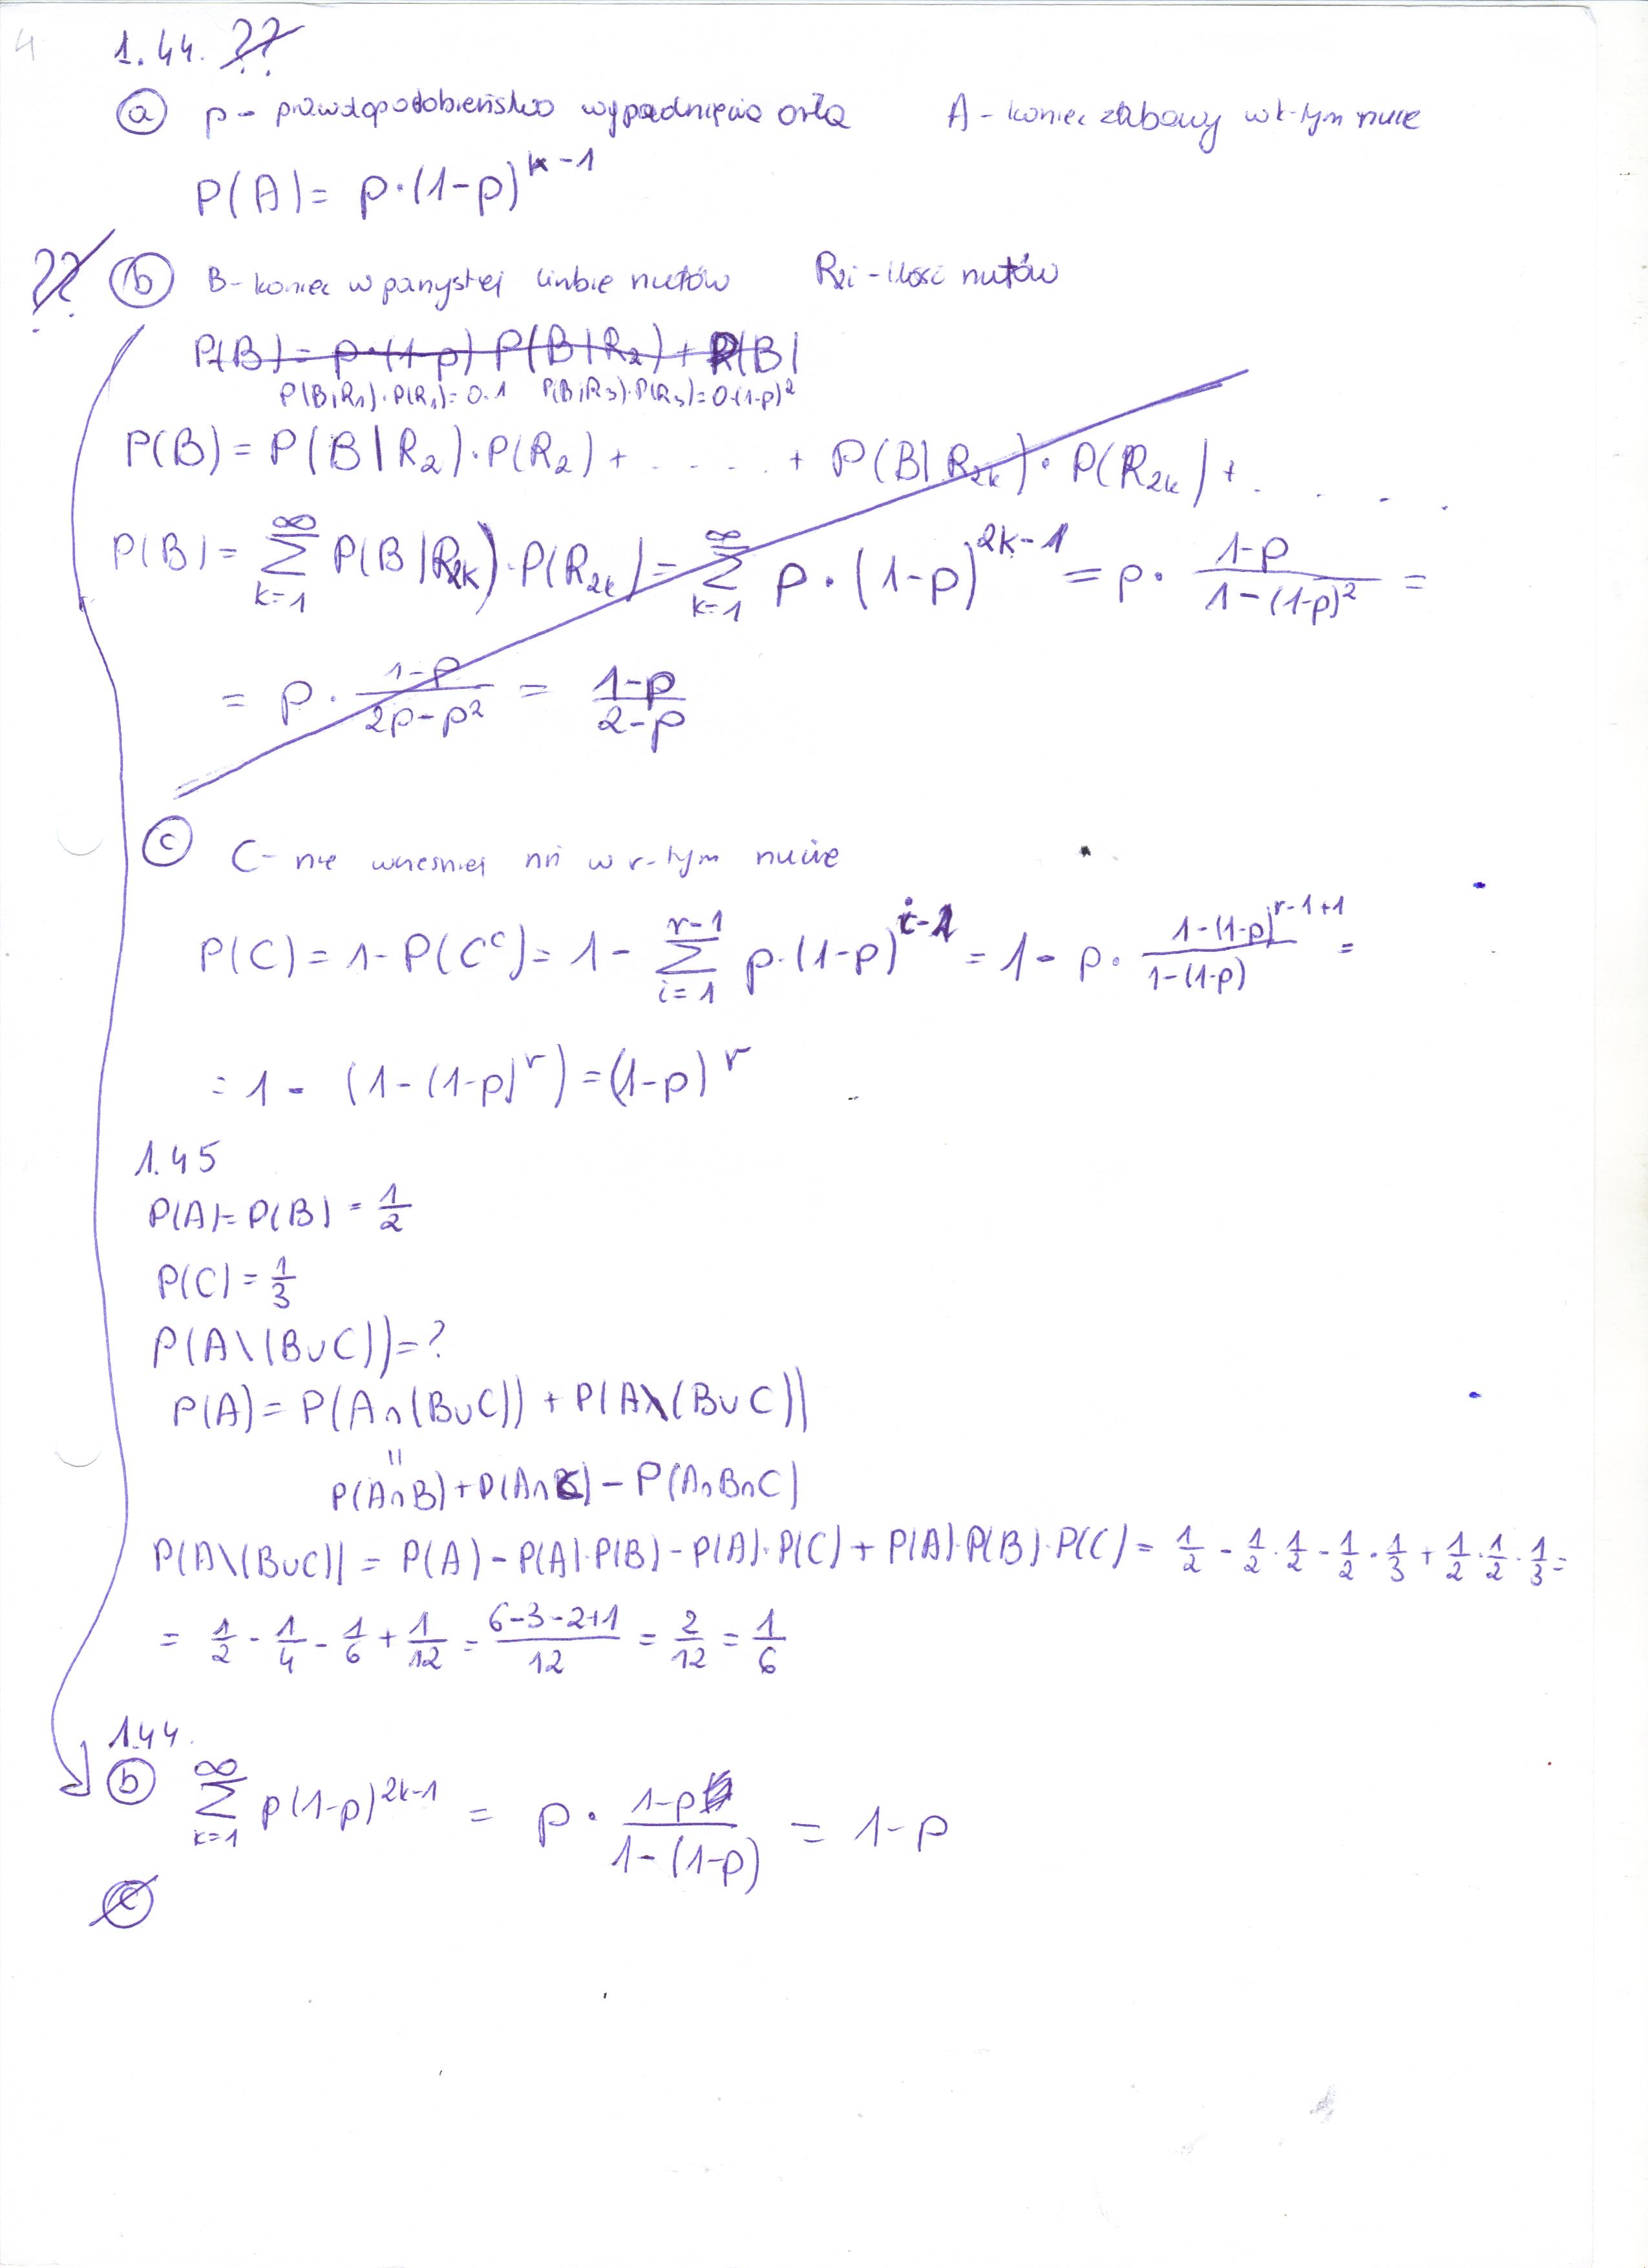 4
1.44. ??
(a) p - prawdopodobieństwo wypadnięcia orła A - koniec zabawy w k-tym rzucie
P(A) = p·(1-p)^{k-1}
?? (b) B - koniec w parzystej liczbie rzutów R_i - ilość rzutów
P(B) = p·(1-p) P(B|R_2) + P(B|
P(B|R_1)·P(R_1) = 0·1 P(B|R_3)·P(R_3) = 0·(1-p)^2
P(B) = P(B|R_2)·P(R_2) + ..... + P(B|R_{2k})·P(R_{2k}) + ....
P(B) = \sum_{k=1}^{∞} P(B|R_{2k})·P(R_{2k}) = \sum_{k=1}^{∞} p·(1-p)^{2k-1} = p· \frac{1-p}{1-(1-p)^2} =
= p· \frac{1-p}{2p-p^2} = \frac{1-p}{2-p}
(c) C - nie wcześniej niż w r-tym rzucie
P(C) = 1 - P(C^c) = 1 - \sum_{i=1}^{r-1} p·(1-p)^{i-1} = 1 - p· \frac{1-(1-p)^{r-1+1}}{1-(1-p)} =
= 1 - (1-(1-p)^r) = (1-p)^r
1.45
P(A) = P(B) = \frac{1}{2}
P(C) = \frac{1}{3}
P(A\(B∪C)) = ?
P(A) = P(A∩(B∪C)) + P(A\(B∪C))
"
P(A∩B) + P(A∩C) - P(A∩B∩C)
P(A\(B∪C)) = P(A) - P(A)·P(B) - P(A)·P(C) + P(A)·P(B)·P(C) = \frac{1}{2} - \frac{1}{2}·\frac{1}{2} - \frac{1}{2}·\frac{1}{3} + \frac{1}{2}·\frac{1}{2}·\frac{1}{3} =
= \frac{1}{2} - \frac{1}{4} - \frac{1}{6} + \frac{1}{12} = \frac{6-3-2+1}{12} = \frac{2}{12} = \frac{1}{6}
1.44.
(b) \sum_{k=1}^{∞} p(1-p)^{2k-1} = p· \frac{1-p}{1-(1-p)} = 1-p
(c)